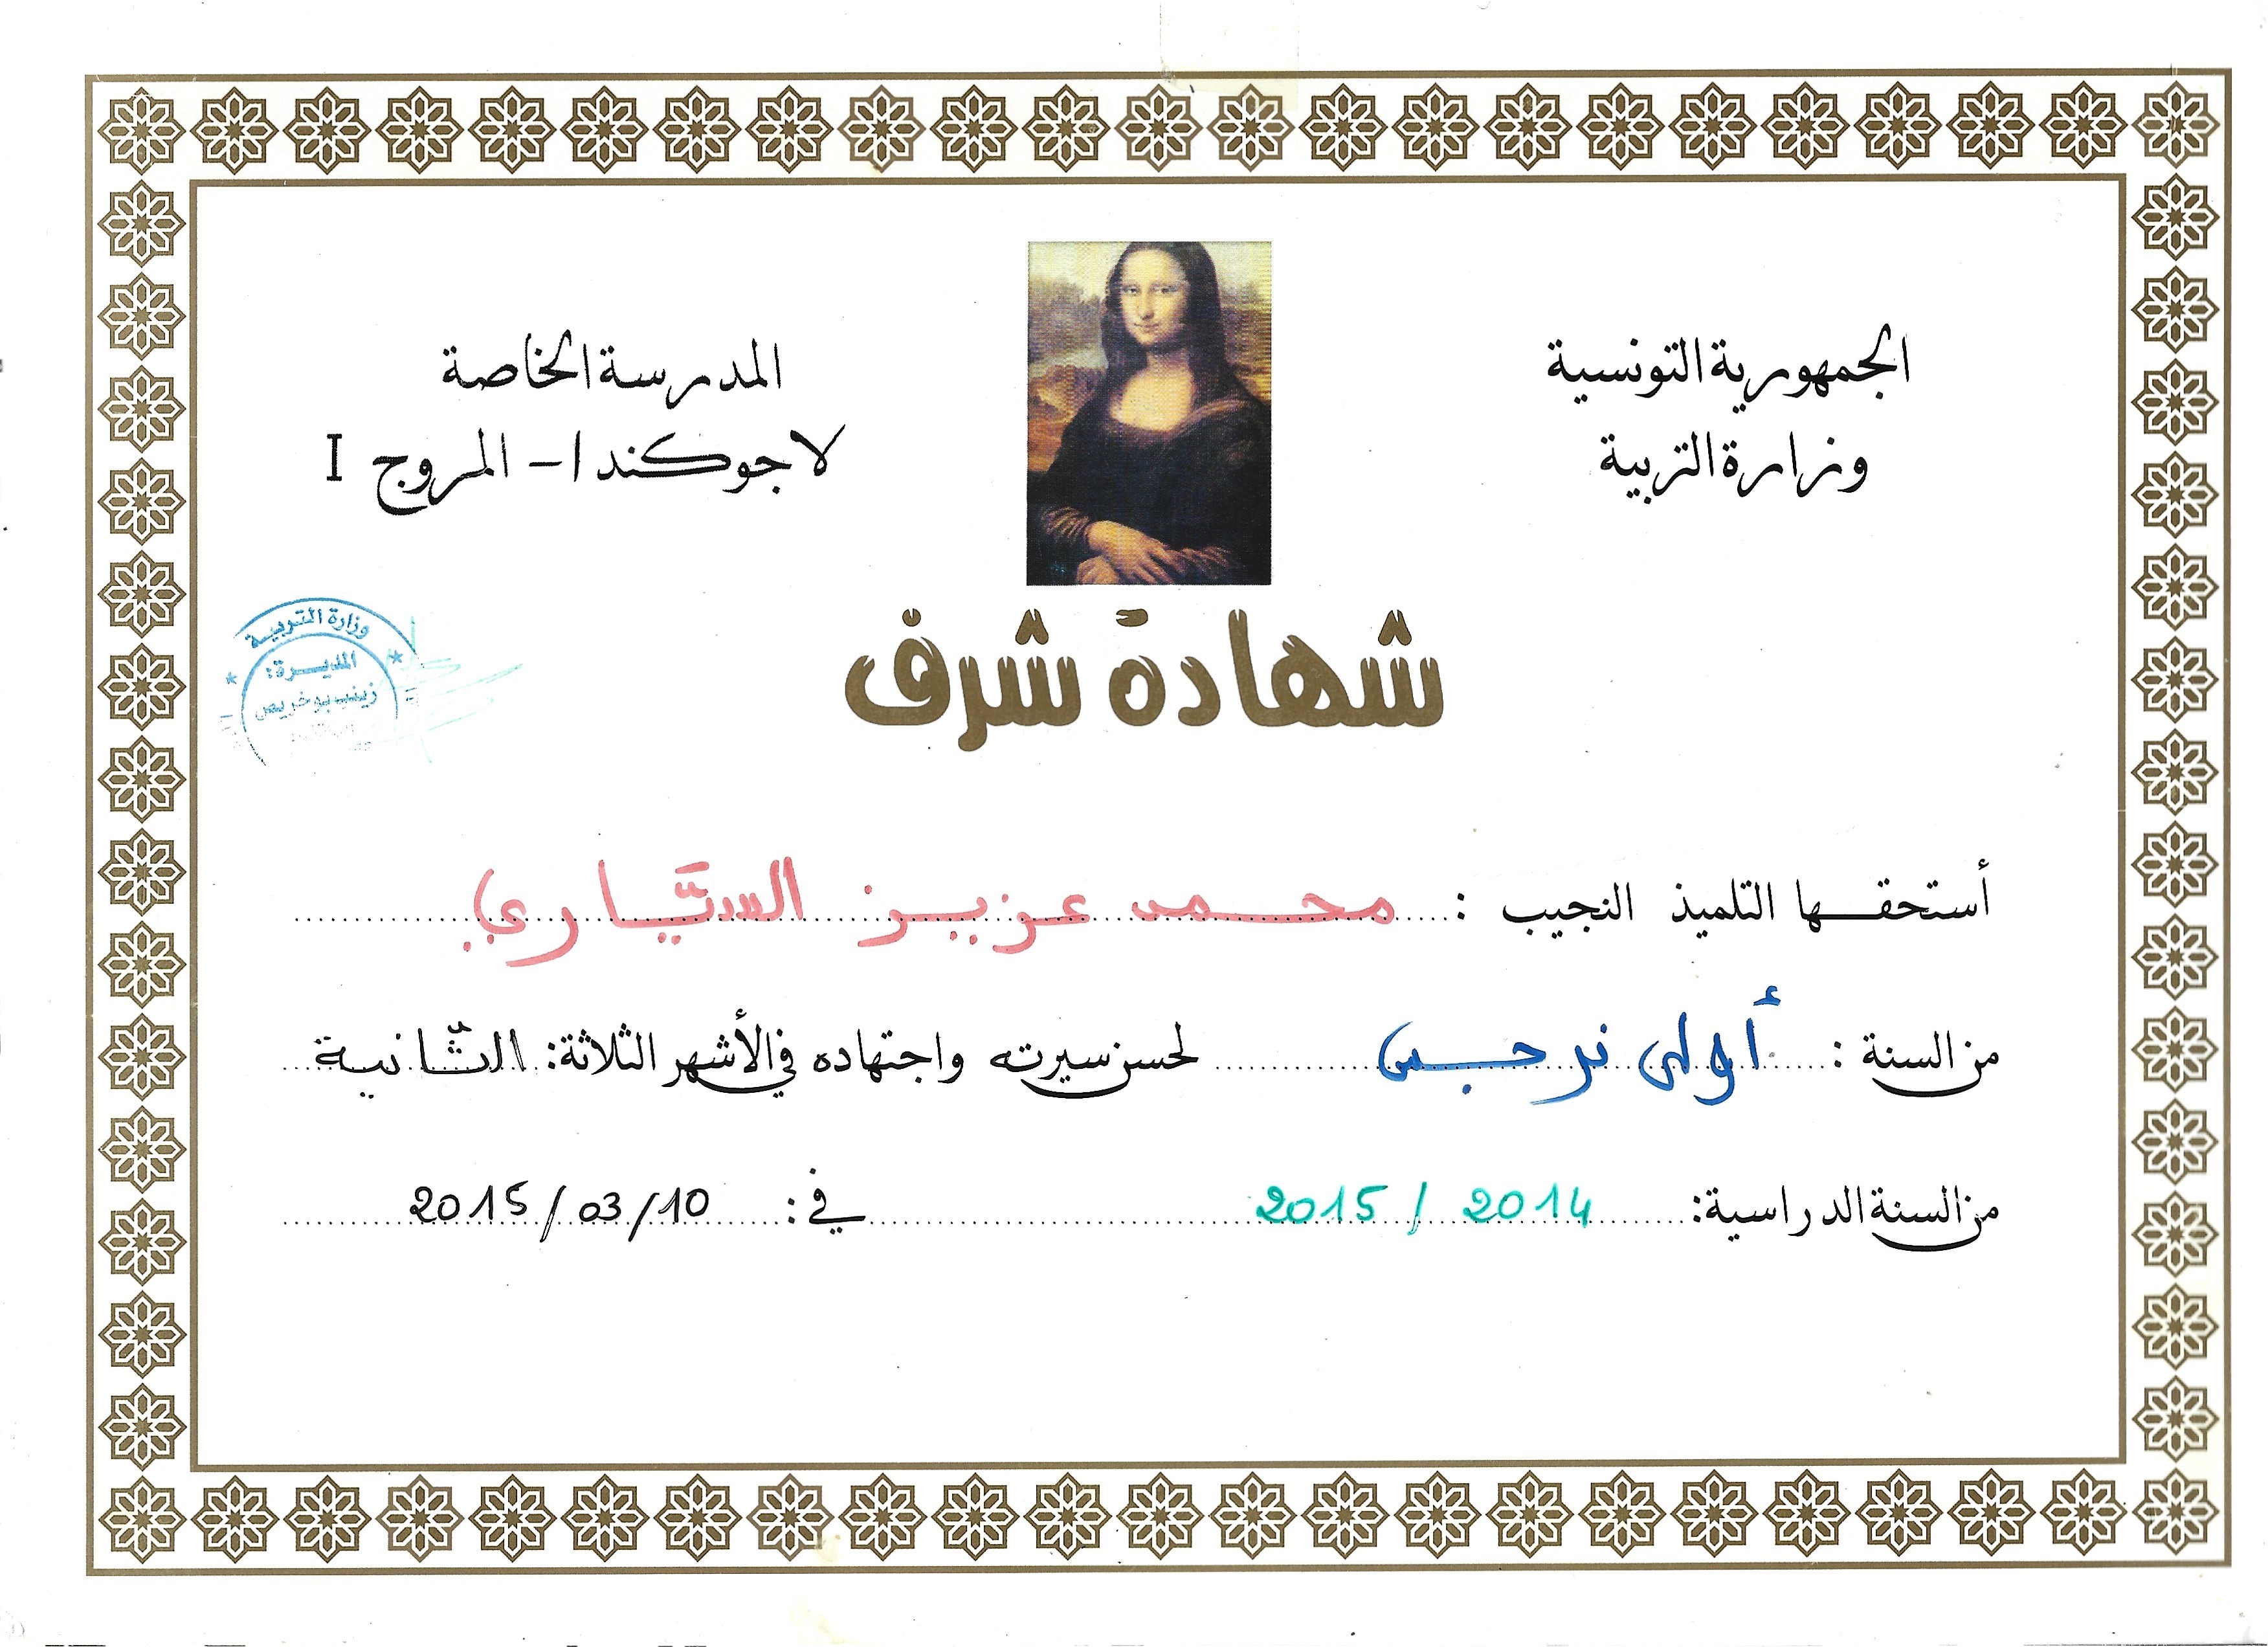 الجمهورية التونسية
وزارة التربية
المدرسة الخاصة
لاجوكندا - المروج I
وزارة التربية
المديرة:
زينب بوخريص
شهادة شرف
أستحقها التلميذ النجيب : محمد عزيز السيّاري
من السنة : أولى نرجس لحسن سيرته واجتهاده في الأشهر الثلاثة: الثّانية
من السنة الدراسية: 2014 / 2015 في : 10/03/2015